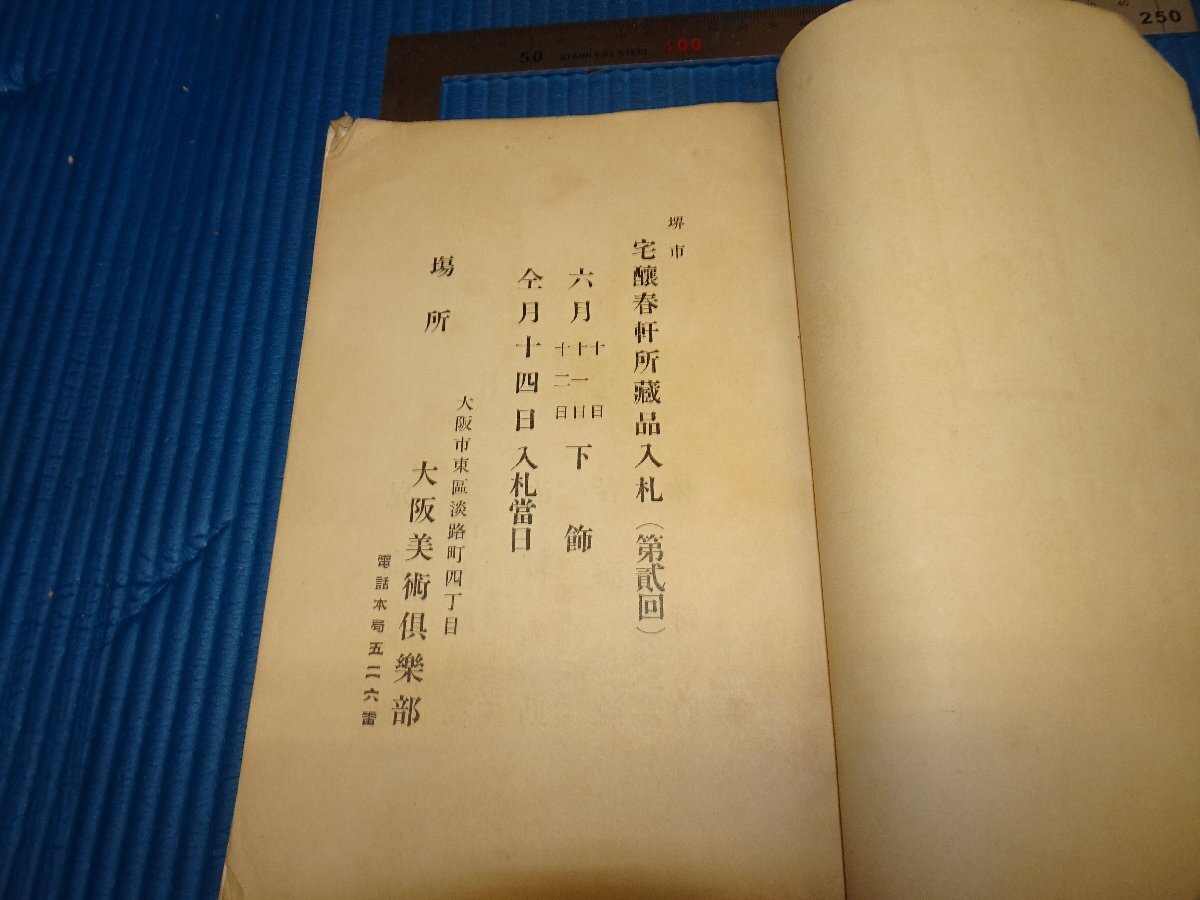 堺市
宅釀春軒所藏品入札（第貳回）
六月
十日
十一日
十二日
下飾
仝月十四日入札當日
塲所
大阪市東區淡路町四丁目
大阪美術倶樂部
電話本局五二六番
50 STAINLESS STEEL 100
250